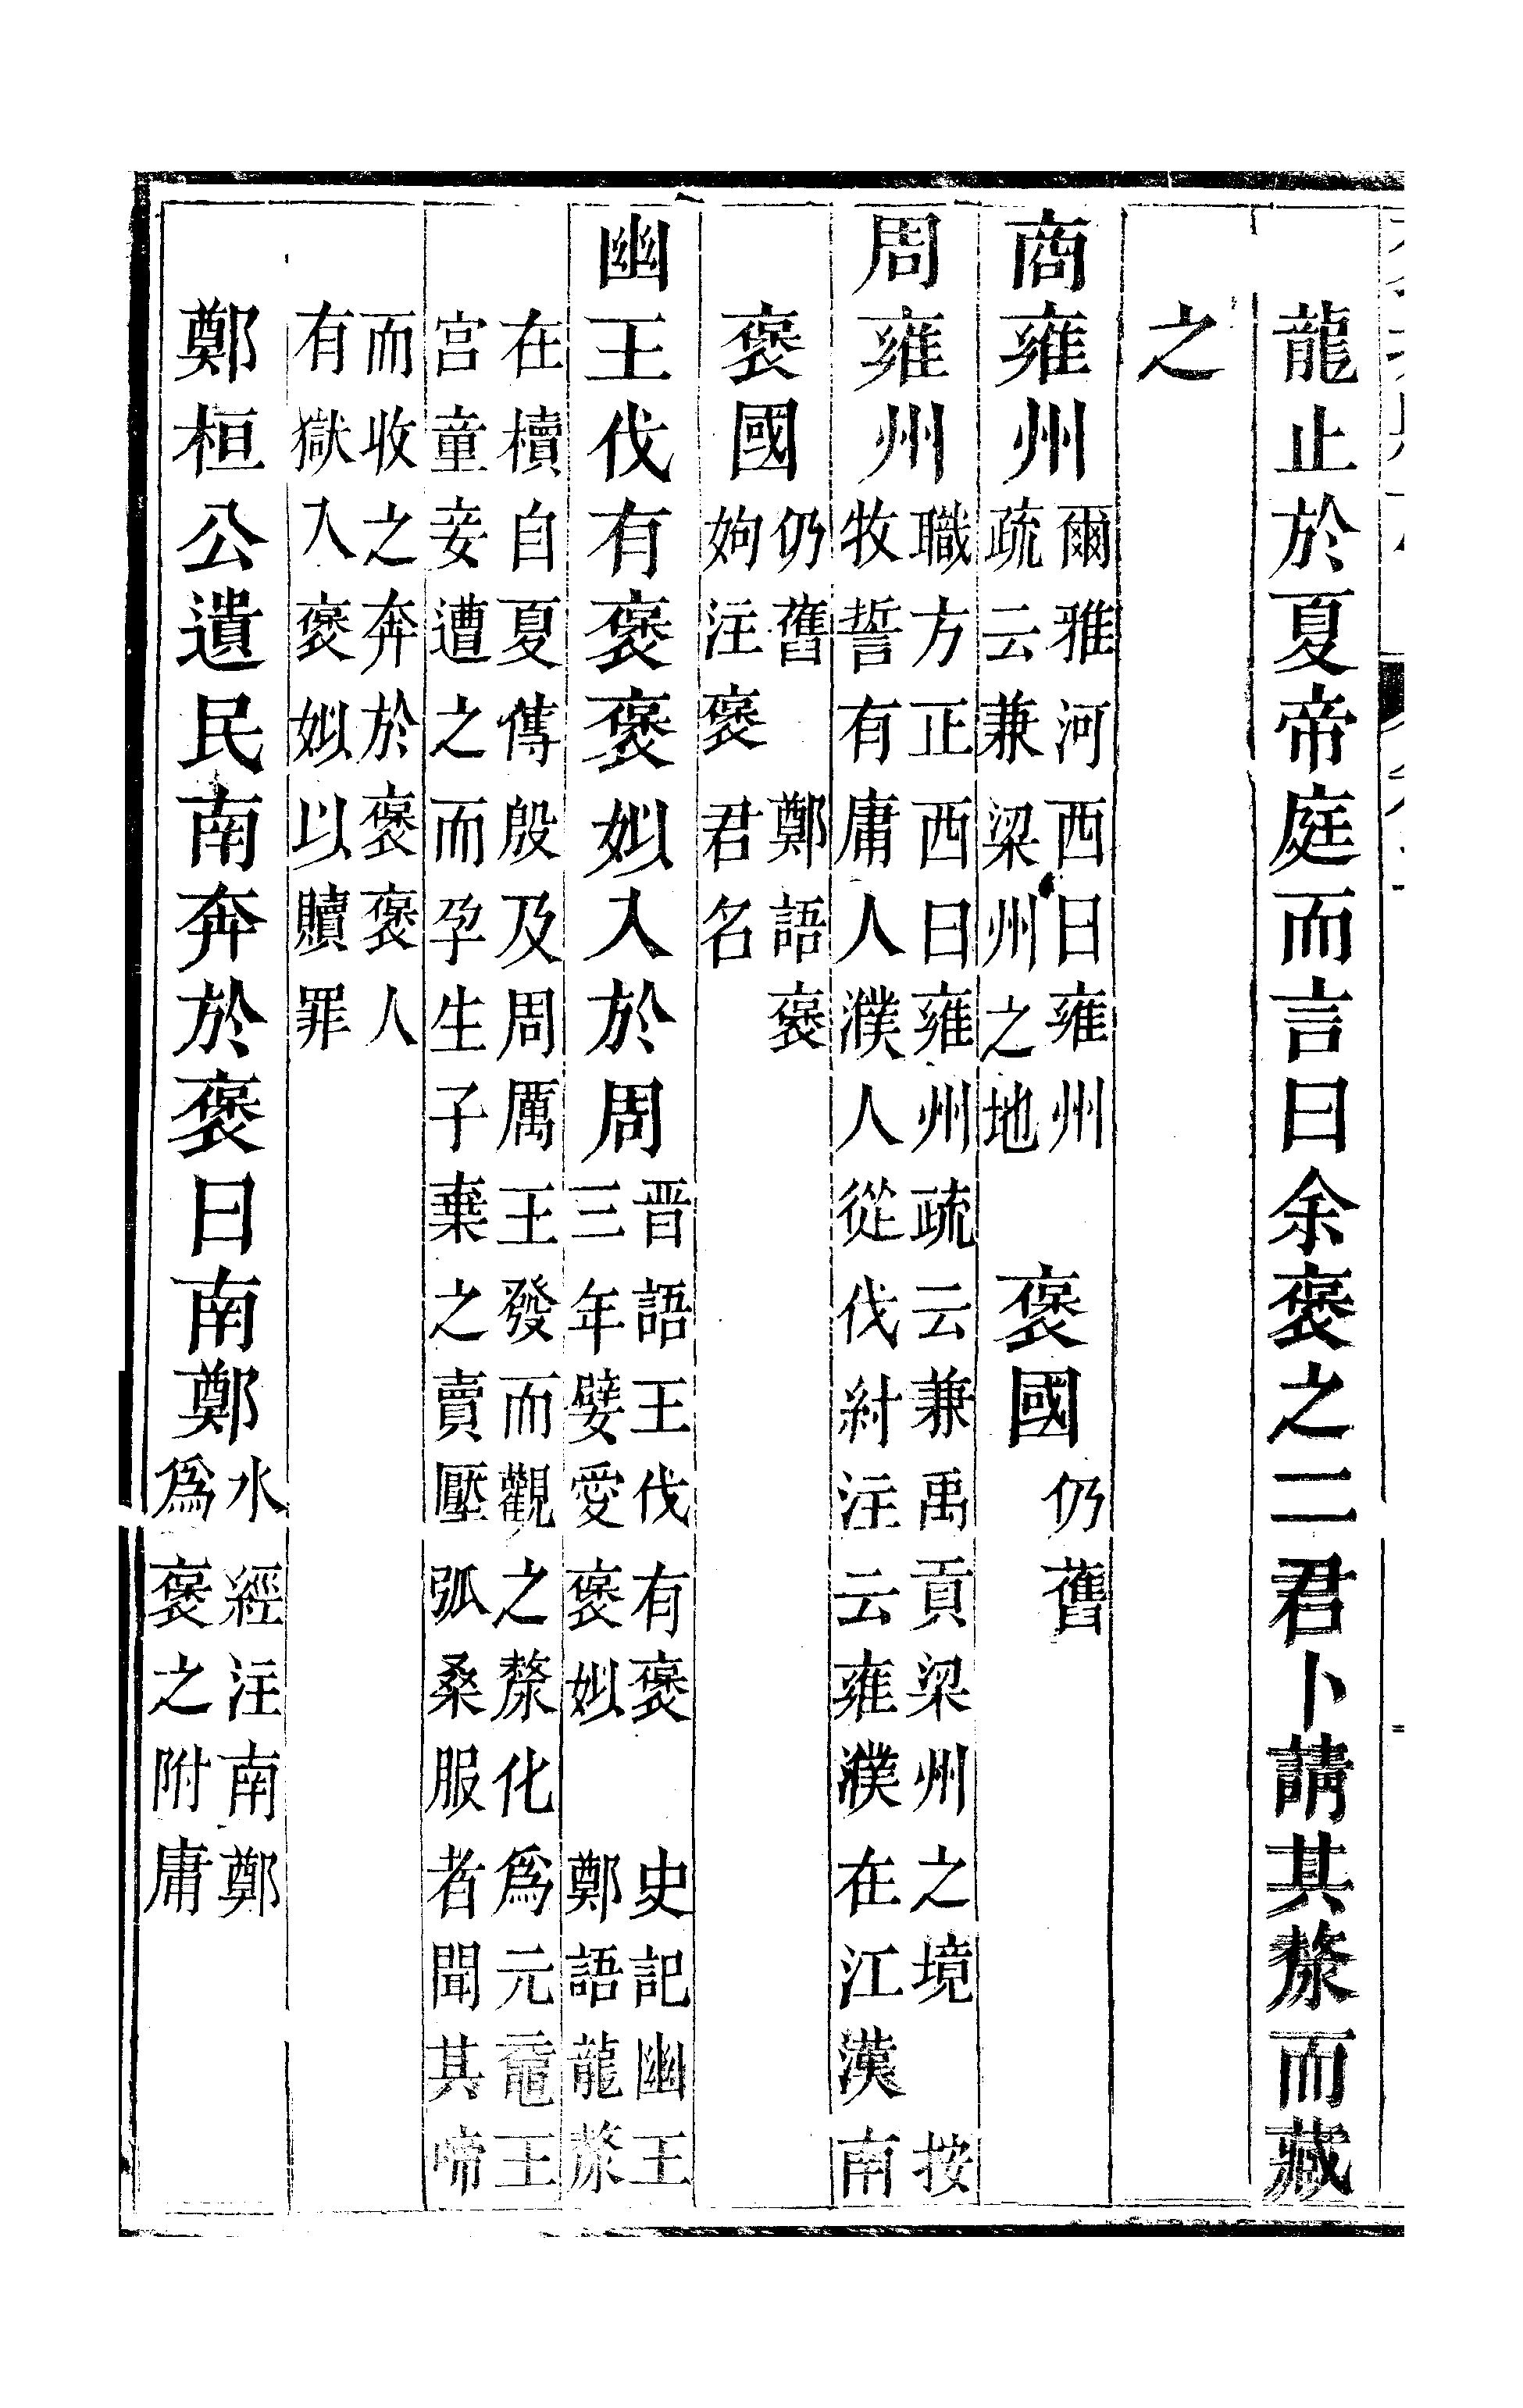 龍止於夏帝庭而言曰余褒之二君卜請其漦而藏
之
商雍州爾雅河西曰雍州
疏云兼梁州之地
褒國仍舊
周雍州職方正西曰雍州疏云兼禹貢梁州之境　按
牧誓有庸人濮人從伐紂注云雍濮在江漢南
褒國仍舊　鄭語褒
姁注褒　君名
幽王伐有褒褒姒入於周晋語王伐有褒　史記幽王
三年嬖愛褒姒　鄭語龍漦
在櫝自夏傳殷及周厲王發而觀之漦化爲元黿王
宫童妾遭之而孕生子棄之賣壓弧桑服者聞其啼
而收之奔於褒褒人
有獄入褒姒以贖罪
鄭桓公遺民南奔於褒曰南鄭水經注南鄭
爲褒之附庸